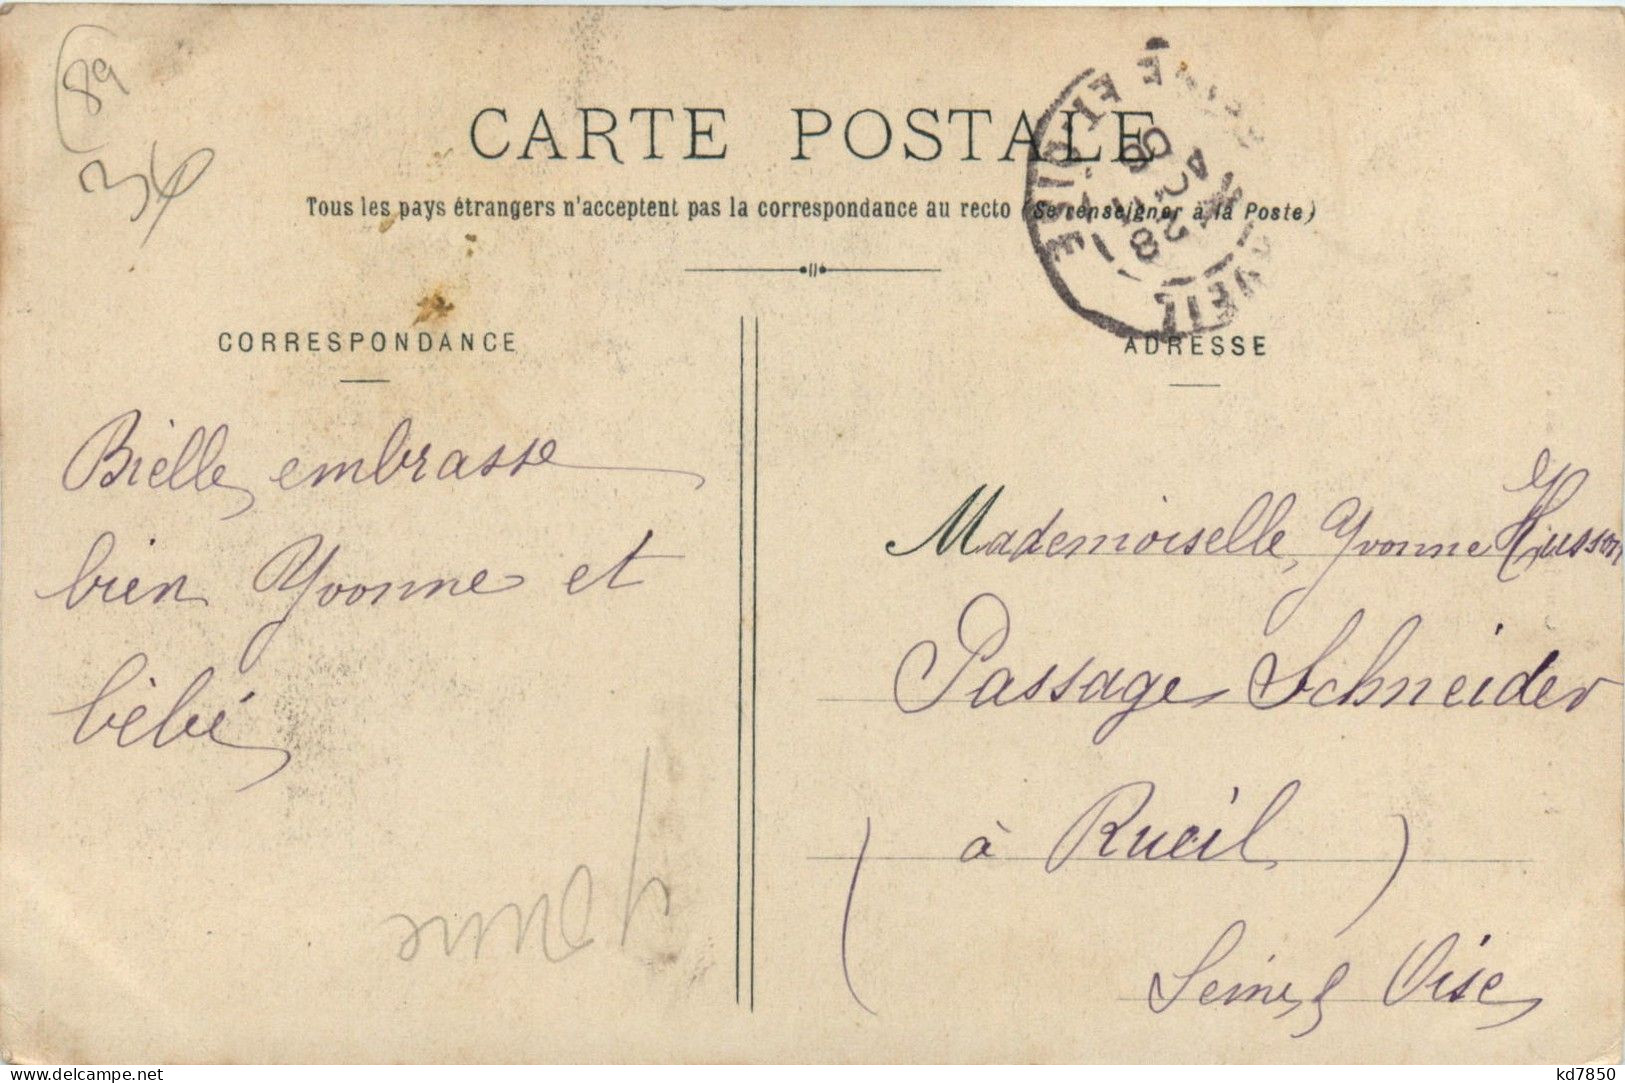 89
CARTE POSTALE
Tous les pays étrangers n'acceptent pas la correspondance au recto (Se renseigner à la Poste)
CORRESPONDANCE
Bielle embrasse
bien Yvonne et
bébé
Yonne
ADRESSE
Mademoiselle Yvonne Husson
Passage Schneider
(à Rueil)
Seine & Oise
SEINE ET OISE
28
AOUT
09
delcampe.net
kd7850